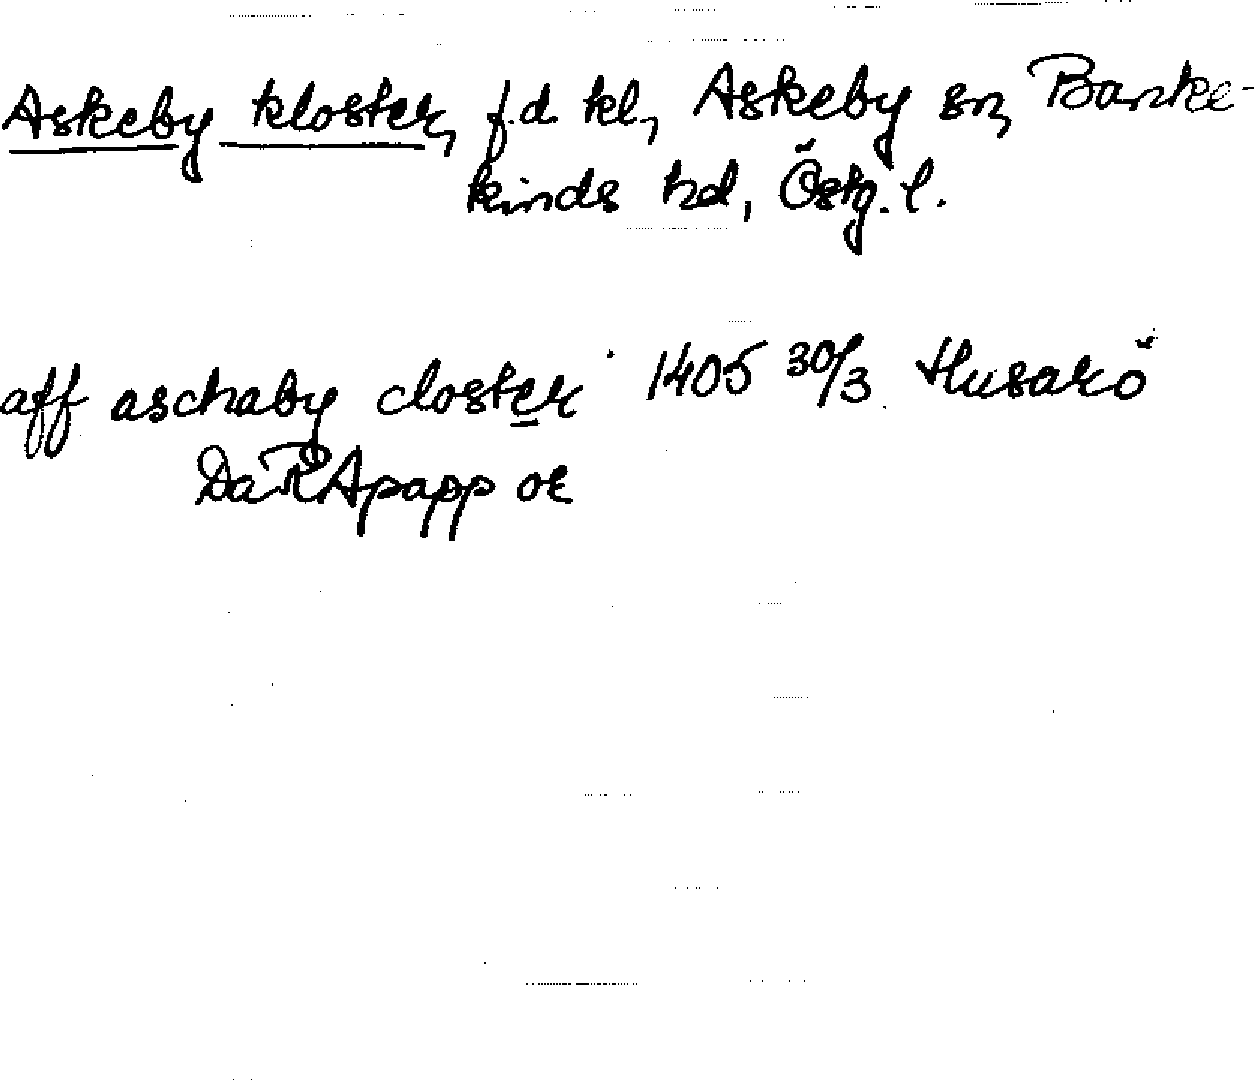 Askeby kloster, f.d. kl, Askeby sn, Banke-
kinds hd, Östg. l.
aff aschaby closter 1405 30/3 Husarö
DaRApapp or